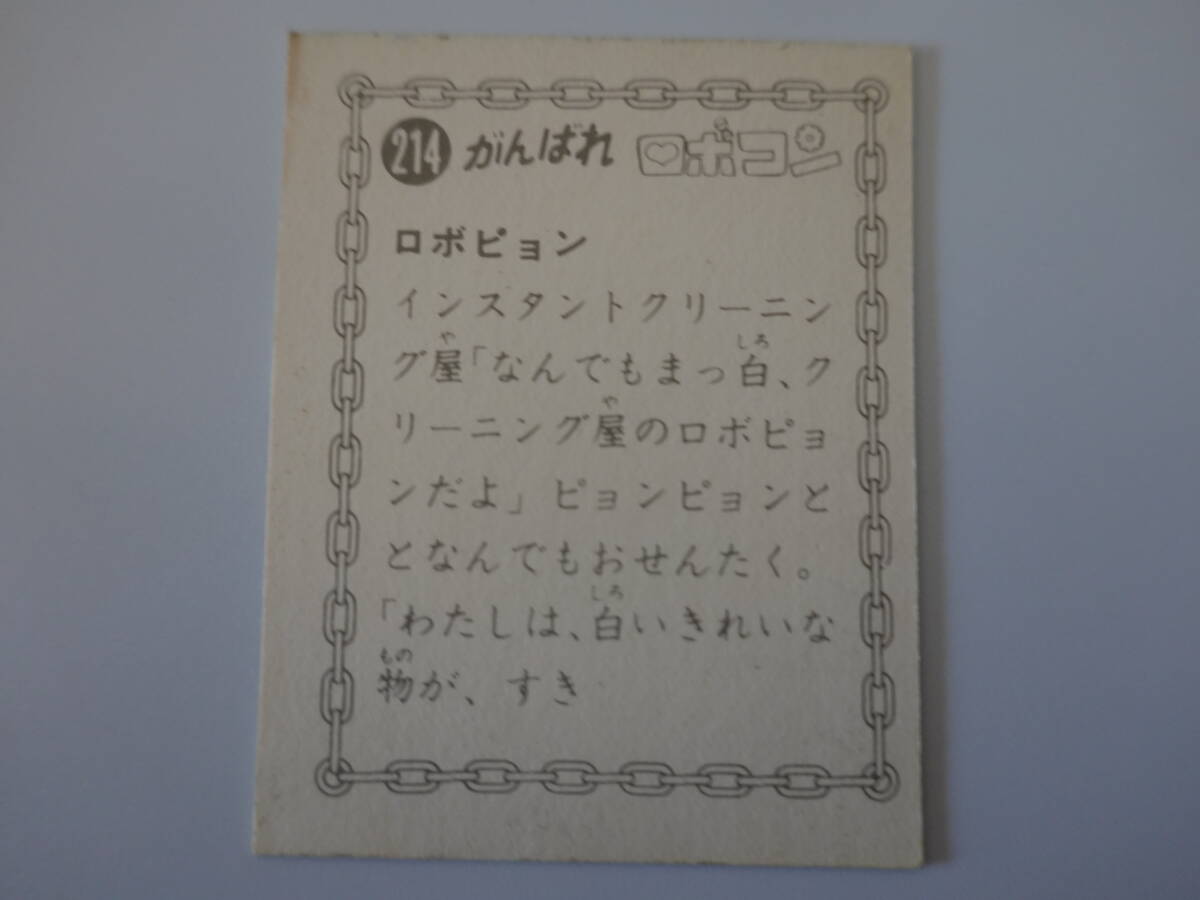 214 がんばれ ロボコン
ロボピョン
インスタントクリーニン
グ屋「なんでもまっ白、ク
リーニング屋のロボピョ
ンだよ」ピョンピョンと
となんでもおせんたく。
「わたしは、白いきれいな
物が、すき